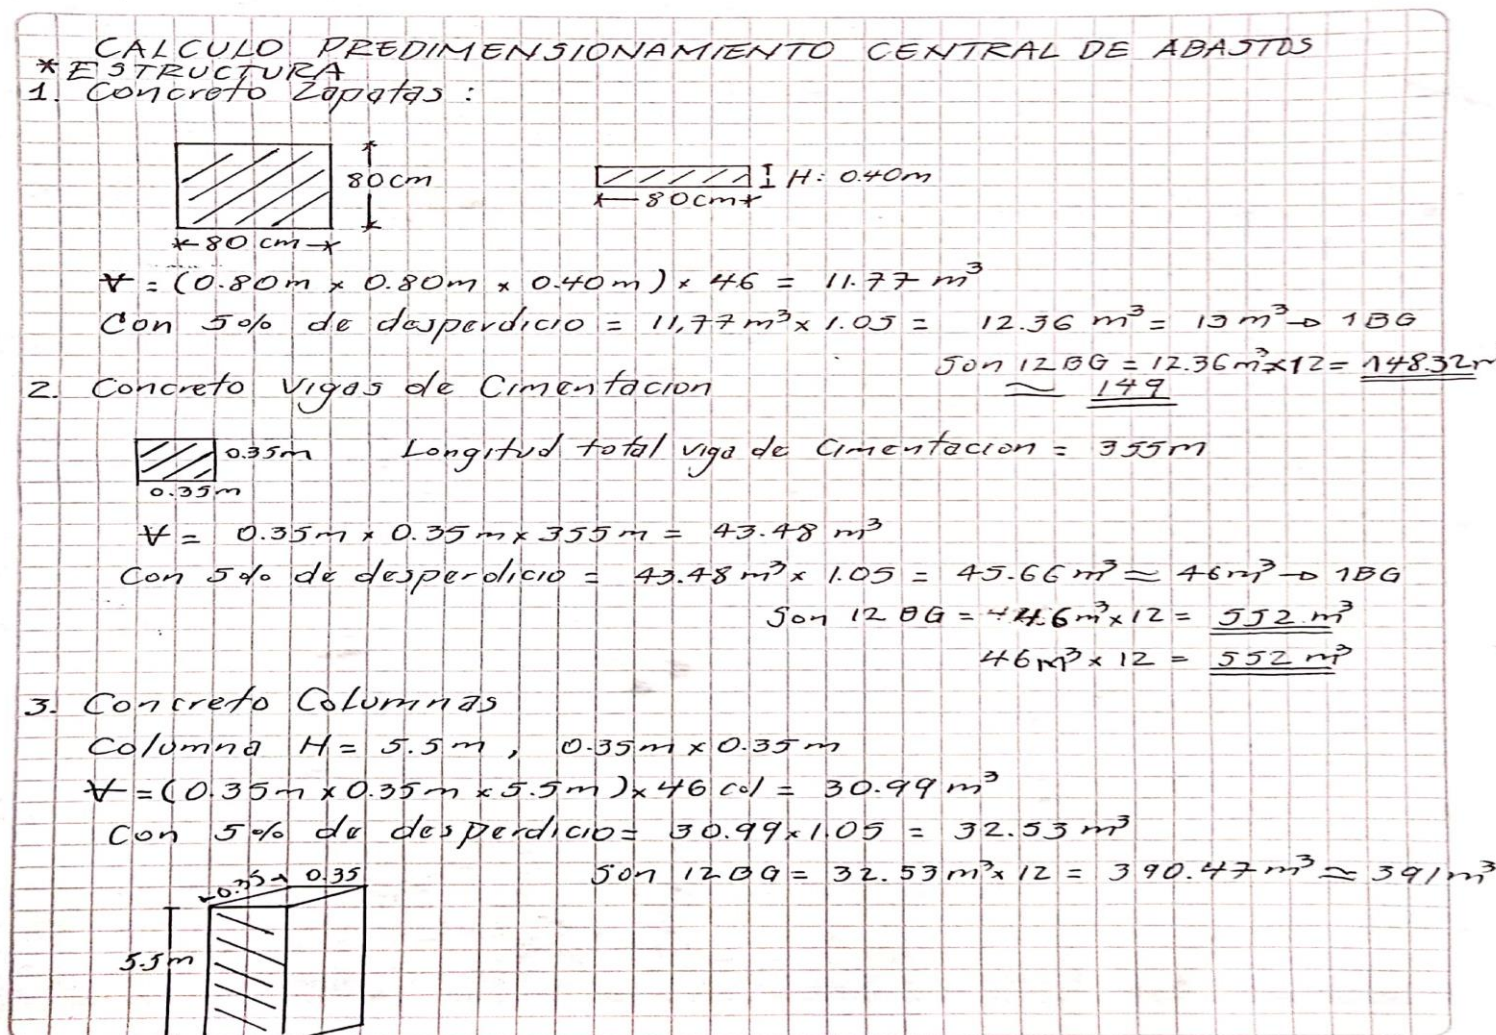 CALCULO PREDIMENSIONAMIENTO CENTRAL DE ABASTOS
* ESTRUCTURA
1. Concreto Zapatas :
80 cm
H: 0.40m
80 cm
80 cm
∀ = (0.80m x 0.80m x 0.40m) x 46 = 11.77 m³
Con 5% de desperdicio = 11,77 m³ x 1.05 = 12.36 m³ = 13 m³ → 1BG
Son 12 BG = 12.36 m³ x 12 = 148.32
≈ 149
2. Concreto Vigas de Cimentacion
0.35m
Longitud total viga de Cimentacion = 355m
0.35m
∀ = 0.35m x 0.35m x 355m = 43.48 m³
Con 5% de desperdicio = 43.48 m³ x 1.05 = 45.66 m³ ≈ 46 m³ → 1BG
Son 12 BG = 46 m³ x 12 = 552 m³
46 m³ x 12 = 552 m³
3. Concreto Columnas
Columna H = 5.5m , 0.35m x 0.35m
∀ = (0.35m x 0.35m x 5.5m) x 46 col = 30.99 m³
Con 5% de desperdicio = 30.99 x 1.05 = 32.53 m³
Son 12 BG = 32.53 m³ x 12 = 390.47 m³ ≈ 391 m³
0.35 0.35
5.5m